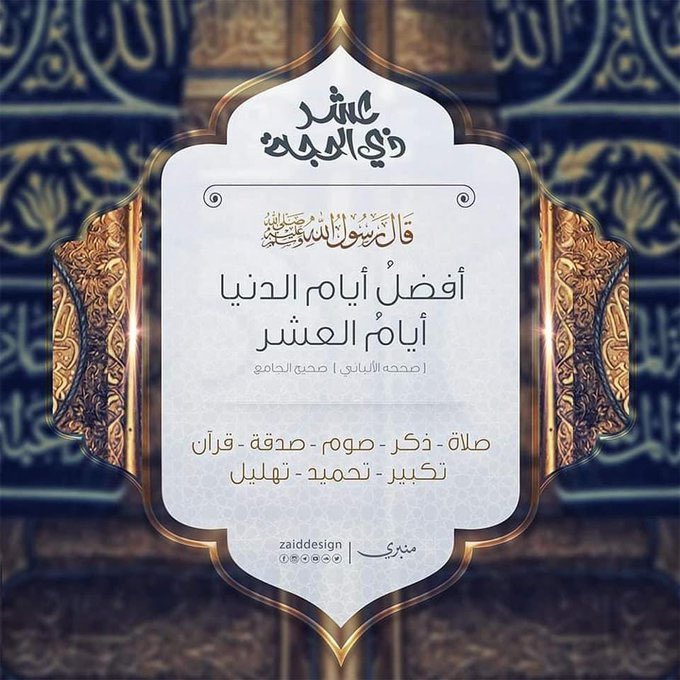 عشر
ذي الحجة
قال رسول الله صلى الله عليه وسلم
أفضلُ أيام الدنيا
أيامُ العشر
[ صححه الألباني ] صحيح الجامع
صلاة - ذكر - صوم - صدقة - قرآن
تكبير - تحميد - تهليل
منبري | zaiddesign